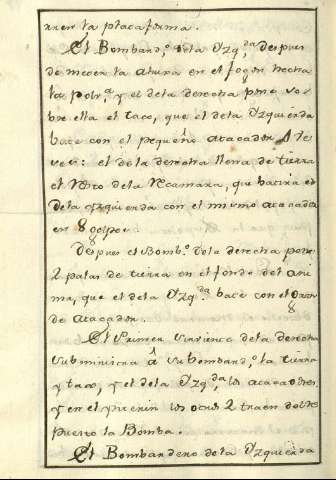 nen la plataforma.
El Bombard.º dela Yzq.da, despues
de mecer la atura en el fogon hecha
la polv.ª, y el dela derecha pone so-
bre ella el taco, que el dela Yzquierda
bate con el pequeño atacador 4 ve-
ces: el de la derecha llena de tierra
el resto dela Recamara, que batira el
dela yzquierda con el mismo atacador
en 8 golpes.
Despues el Bomb.º dela derecha pone
2 palas de tierra en el fondo del ani-
ma, que el dela Yzq.da bate con el
de Atacador. 8
El Primer sirviente dela derecha
subministra â su bombard.º la tierra
y taco, y el dela Yzq.da, los atacadores,
y en el los otros 2 traen
puesto la Bomba.
El Bombardero de la Yzquierda